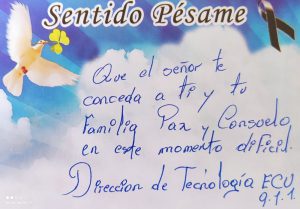 Sentido Pésame
Que el señor te
conceda a ti y tu
Familia Paz y Consuelo
en este momento dificil.
Direccion de Tecnología ECU
9.1.1.